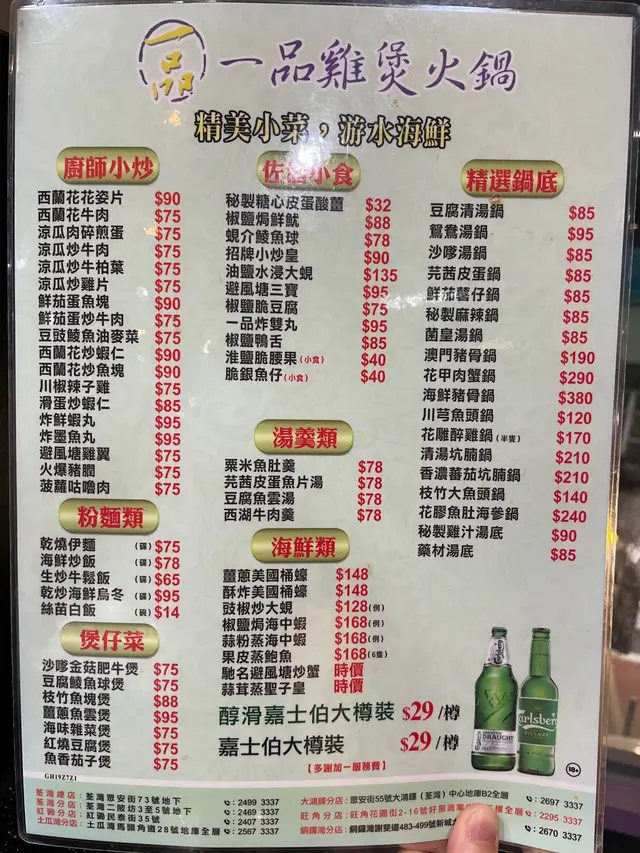 一品
一品雞煲火鍋
精美小菜，游水海鮮
廚師小炒
西蘭花花姿片 $90
西蘭花牛肉 $75
涼瓜肉碎煎蛋 $75
涼瓜炒牛肉 $75
涼瓜炒牛柏葉 $75
涼瓜炒雞片 $75
鮮茄蛋魚塊 $90
鮮茄蛋炒牛肉 $75
豆豉鯪魚油麥菜 $75
西蘭花炒蝦仁 $90
西蘭花炒魚塊 $90
川椒辣子雞 $75
滑蛋炒蝦仁 $85
炸鮮蝦丸 $95
炸墨魚丸 $95
避風塘雞翼 $75
火爆豬膶 $75
菠蘿咕嚕肉 $75
粉麵類
乾燒伊麵 (碟) $75
海鮮炒飯 (碟) $78
生炒牛鬆飯 (碟) $65
乾炒海鮮烏冬 (碟) $95
絲苗白飯 (碗) $14
煲仔菜
沙嗲金菇肥牛煲 $75
豆腐鯪魚球煲 $75
枝竹魚塊煲 $88
薑蔥魚雲煲 $95
海味雜菜煲 $75
紅燒豆腐煲 $75
魚香茄子煲 $75
GH19Z7Z1
佐 小食
秘製糖心皮蛋酸薑 $32
椒鹽焗鮮魷 $88
蜆介鯪魚球 $78
招牌小炒皇 $90
油鹽水浸大蜆 $135
避風塘三寶 $95
椒鹽脆豆腐 $75
一品炸雙丸 $95
椒鹽鴨舌 $85
淮鹽脆腰果(小食) $40
脆銀魚仔(小食) $40
湯羹類
粟米魚肚羹 $78
芫茜皮蛋魚片湯 $78
豆腐魚雲湯 $78
西湖牛肉羹 $78
海鮮類
薑蔥美國桶蠔 $148
酥炸美國桶蠔 $148
豉椒炒大蜆 $128(例)
椒鹽焗海中蝦 $168(例)
蒜粉蒸海中蝦 $168(例)
果皮蒸鮑魚 $168(6隻)
馳名避風塘炒蟹 時價
蒜茸蒸聖子皇 時價
醇滑嘉士伯大樽裝 $29/樽
嘉士伯大樽裝 $29/樽
【多謝加一服務費】
精選鍋底
豆腐清湯鍋 $85
鴛鴦湯鍋 $95
沙嗲湯鍋 $85
芫茜皮蛋鍋 $85
鮮茄薯仔鍋 $85
秘製麻辣鍋 $85
菌皇湯鍋 $85
澳門豬骨鍋 $190
花甲肉蟹鍋 $290
海鮮豬骨鍋 $380
川芎魚頭鍋 $120
花雕醉雞鍋(半隻) $170
清湯坑腩鍋 $210
香濃蕃茄坑腩鍋 $210
枝竹大魚頭鍋 $140
花膠魚肚海參鍋 $240
秘製雞汁湯底 $90
藥材湯底 $85
Carlsberg
DRAUGHT
Carlsberg
PILSNER
18+
荃灣總店：荃灣眾安街73號地下 : 2499 3337
荃灣分店：荃灣二陂坊3至5號地下 : 2469 3337
紅磡分店：紅磡民泰街35號 : 2407 3337
土瓜灣分店：土瓜灣馬頭角道28號地庫全層 : 2567 3337
大鴻輝分店：眾安街55號大鴻輝（荃灣）中心地庫B2全層 : 2697 3337
旺角分店：旺角花園街2-16號好景商業 樓全層 : 2295 3337
銅鑼灣分店：銅鑼灣謝斐道483-499號新城大 : 2670 3337